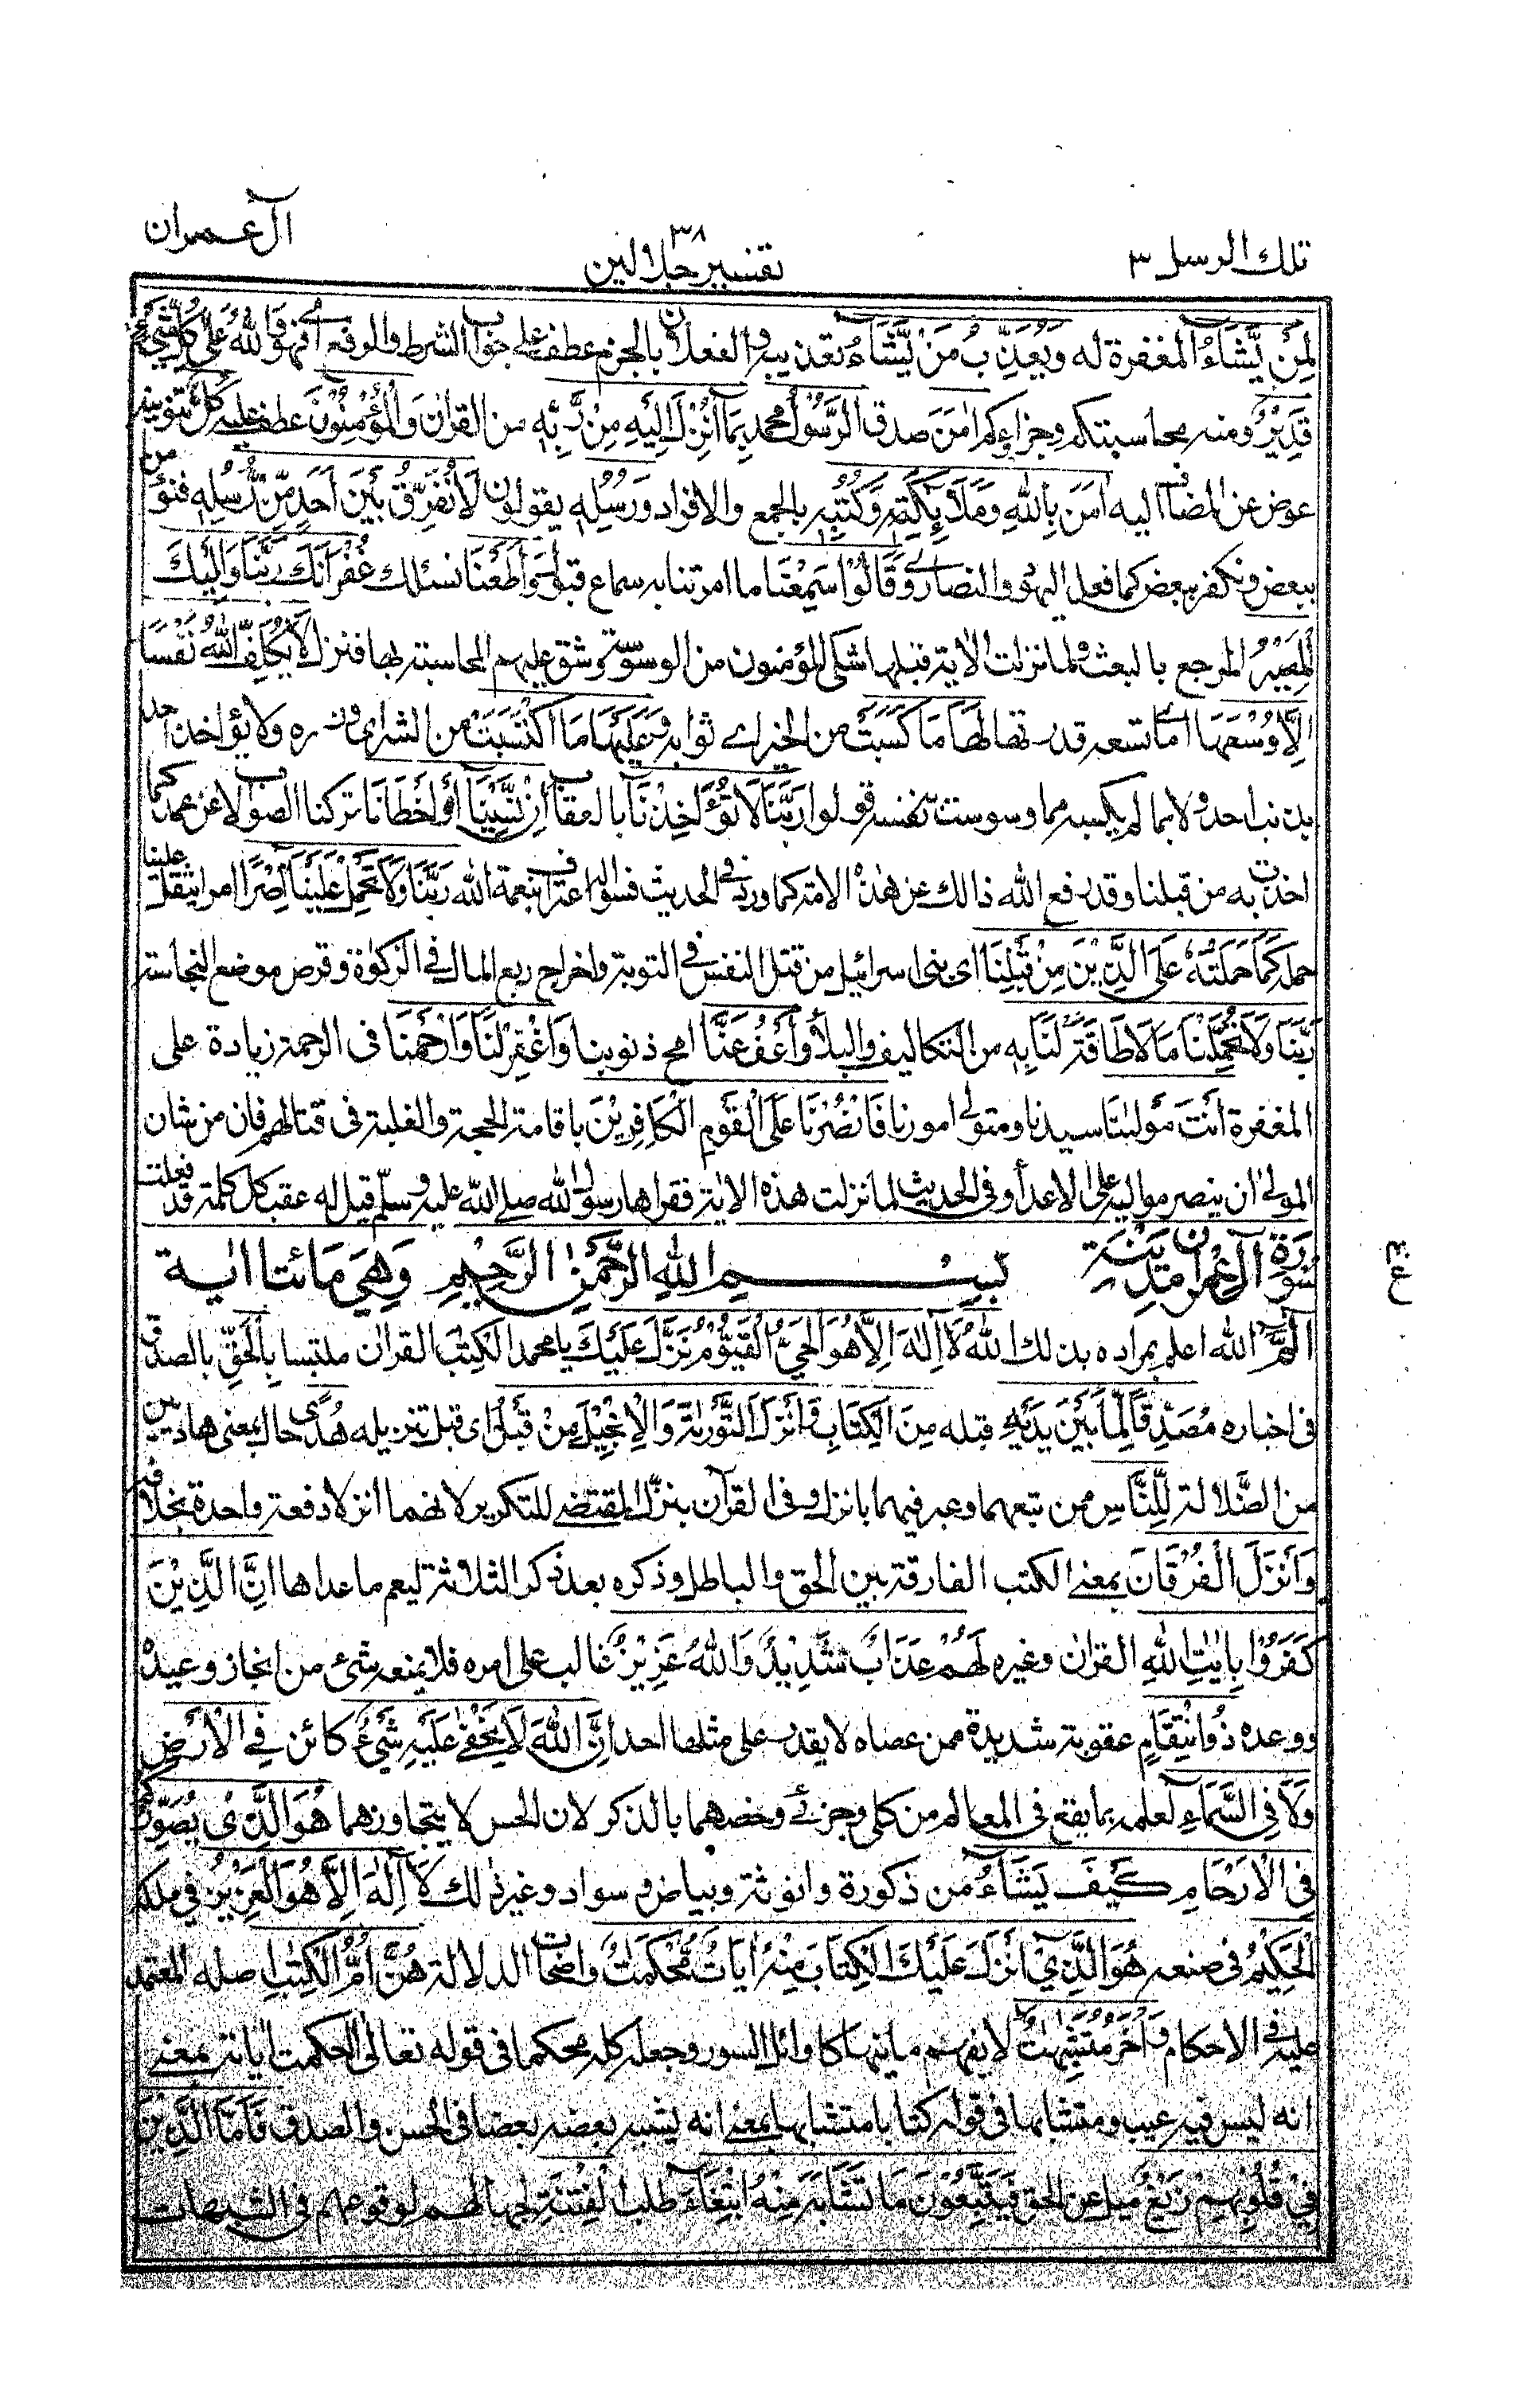 تلك الرسل ٣
٣٨
تفسير جلالين
آل عمران
لِمَنْ يَّشَآءُ المغفرة له وَيُعَذِّبُ مَنْ يَّشَآءُ تعذيبه والفعلان بالجزم عطف على جواب الشرط والرفع اى فهو وَاللّٰهُ عَلٰى كُلِّ شَيْءٍ
قَدِيْرٌ ومنه محاسبتكم وجزاءكم اٰمَنَ صدق الرَّسُوْلُ محمد بِمَآ اُنْزِلَ اِلَيْهِ مِنْ رَّبِّهٖ من القراٰن وَالْمُؤْمِنُوْنَ عطف عليه كُلٌّ تنوينه
عوض عن المضاف اليه اٰمَنَ بِاللّٰهِ وَمَلٰٓئِكَتِهٖ وَكُتُبِهٖ بالجمع والافراد وَرُسُلِهٖ يقولون لَا نُفَرِّقُ بَيْنَ اَحَدٍ مِّنْ رُّسُلِهٖ فنؤمن
ببعض ونكفر ببعض كما فعل اليهود والنصارى وَقَالُوْا سَمِعْنَا ما امرتنا به سماع قبول وَاَطَعْنَا نسئلك غُفْرَانَكَ رَبَّنَا وَاِلَيْكَ
الْمَصِيْرُ المرجع بالبعث ولما نزلت الاٰية قبلها شكى المؤمنون من الوسوسة وشق عليهم المحاسبة بها فنزل لَا يُكَلِّفُ اللّٰهُ نَفْسًا
اِلَّا وُسْعَهَا اى ما تسعه قدرتها لَهَا مَا كَسَبَتْ من الخير اى ثوابه وَعَلَيْهَا مَا اكْتَسَبَتْ من الشر اى وزره ولا يؤاخذ احد
بذنب احد ولا بما لم يكسبه مما وسوست به نفسه قولوا رَبَّنَا لَا تُؤَاخِذْنَآ بالعقاب اِنْ نَّسِيْنَآ اَوْ اَخْطَاْنَا تركنا الصواب لا عن عمد كما
اخذت به من قبلنا وقد رفع الله ذالك عن هٰذه الامة كما ورد فى الحديث فسواله اعتراف بنعمة الله رَبَّنَا وَلَا تَحْمِلْ عَلَيْنَآ اِصْرًا امرا يثقل علينا
حمله كَمَا حَمَلْتَهٗ عَلَى الَّذِيْنَ مِنْ قَبْلِنَا اى بنى اسرائيل من قتل النفس فى التوبة واخراج ربع المال فى الزكوٰة وقرض موضع النجاسة
رَبَّنَا وَلَا تُحَمِّلْنَا مَا لَا طَاقَةَ لَنَا بِهٖ من التكاليف والبلاء وَاعْفُ عَنَّا امح ذنوبنا وَاغْفِرْ لَنَا وَارْحَمْنَا فى الرحمة زيادة على
المغفرة اَنْتَ مَوْلٰىنَا سيدنا ومتولى امورنا فَانْصُرْنَا عَلَى الْقَوْمِ الْكَافِرِيْنَ باقامة الحجة والغلبة فى قتالهم فان من شان
المولىٰ ان ينصر مواليه على الاعداء وفى الحديث لما نزلت هذه الاٰية فقراها رسول الله صلے الله عليه وسلم قيل له عقب كل كلمة قد فعلت
سورة آل عمران مدنية بسم الله الرَّحْمٰنِ الرَّحِيْمِ وَهِيَ مَائتا اٰية
الٓمّٓ الله اعلم بمراده بذلك اَللّٰهُ لَآ اِلٰهَ اِلَّا هُوَ الْحَيُّ الْقَيُّوْمُ نَزَّلَ عَلَيْكَ يا محمد الْكِتٰبَ القراٰن ملتبسا بِالْحَقِّ بالصدق
فى اخباره مُصَدِّقًا لِّمَا بَيْنَ يَدَيْهِ قبله مِنَ الْكِتَابِ وَاَنْزَلَ التَّوْرٰىةَ وَالْاِنْجِيْلَ مِنْ قَبْلُ اى قبل تنزيله هُدًى حال بمعنى هاديين
من الضلالة لِّلنَّاسِ ممن تبعهما وعبر فيهما بانزل وفى القرآن بنزّل المقتضى للتكرير لانهما انزلا دفعة واحدة بخلافه
وَاَنْزَلَ الْفُرْقَانَ بمعنے الكتب الفارقة بين الحق والباطل وذكره بعد ذكر الثلاثة ليعم ما عداها اِنَّ الَّذِيْنَ
كَفَرُوْا بِاٰيٰتِ اللّٰهِ القراٰن وغيره لَهُمْ عَذَابٌ شَدِيْدٌ وَاللّٰهُ عَزِيْزٌ غالب على امره فلا يمنعه شئ من انجاز وعيده
ووعده ذُو انْتِقَامٍ عقوبة شديدة ممن عصاه لا يقدر على مثلها احد اِنَّ اللّٰهَ لَا يَخْفٰى عَلَيْهِ شَيْءٌ كائن فِي الْاَرْضِ
وَلَا فِي السَّمَآءِ لعلمه بما يقع فى العالم من كلى وجزئے وخصهما بالذكر لان الحس لا يتجاوزهما هُوَ الَّذِيْ يُصَوِّرُكُمْ
فِي الْاَرْحَامِ كَيْفَ يَشَآءُ من ذكورة وانوثة وبياض وسواد وغير ذٰلك لَآ اِلٰهَ اِلَّا هُوَ الْعَزِيْزُ فى ملكه
الْحَكِيْمُ فى صنعه هُوَ الَّذِيْٓ اَنْزَلَ عَلَيْكَ الْكِتَابَ مِنْهُ اٰيَاتٌ مُّحْكَمٰتٌ واضحات الدلالة هُنَّ اُمُّ الْكِتٰبِ اصله المعتمد
عليه فى الاحكام وَاُخَرُ مُتَشٰبِهٰتٌ لا يفهم معانيها كاوائل السور وجعله كله محكما فى قوله تعالىٰ احكمت اٰياته بمعنے
انه ليس فيه عيب ومتشابها فى قوله كتابا متشابها بمعنے انه يشبه بعضه بعضا فى الحسن والصدق فَاَمَّا الَّذِيْنَ
فِيْ قُلُوْبِهِمْ زَيْغٌ ميل عن الحق فَيَتَّبِعُوْنَ مَا تَشَابَهَ مِنْهُ ابْتِغَآءَ طلب الْفِتْنَةِ لجهالهم لوقوعهم فى الشبهات